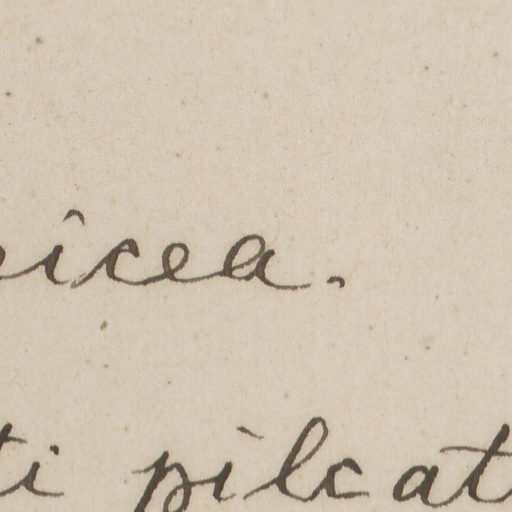 icea.
ti pilcat